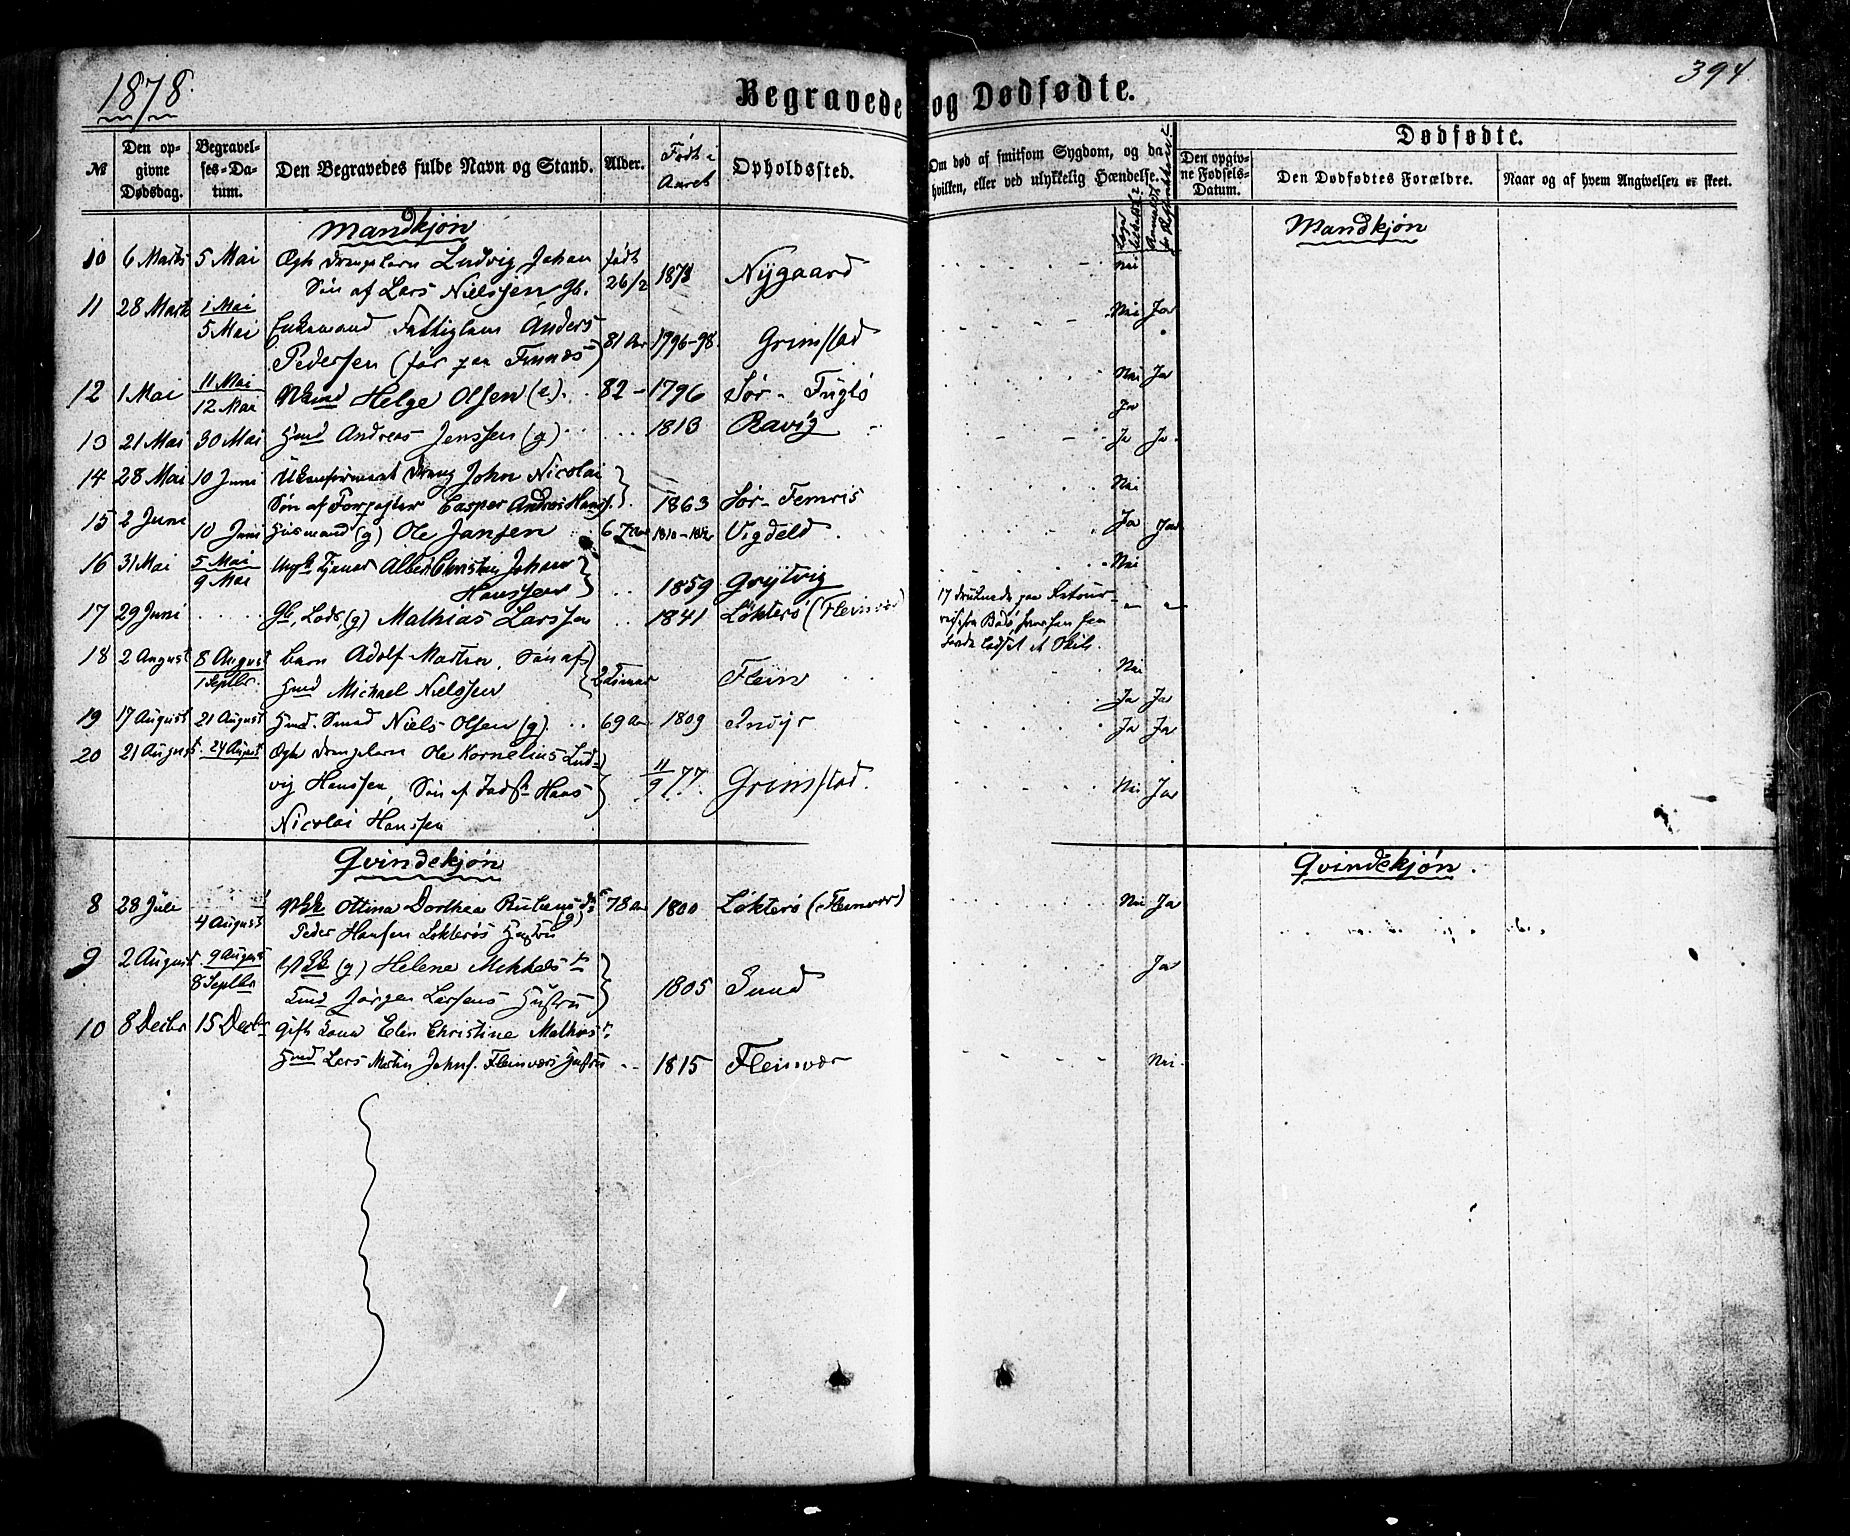 1878.
Begravede og Dødfødte.
394
№
Den opgivne Dødsdag.
Begravelses-Datum.
Den Begravedes fulde Navn og Stand.
Alder.
Født i Aaret
Opholdssted.
Om død af smitsom Sygdom, og da hvilken, eller ved ulykkelig Hændelse.
Dødfødte.
Den opgivne Fødsels-Datum.
Den Dødfødtes Forældre.
Naar og af hvem Angivelsen er skeet.
Mandkjøn
Mandkjøn
10 6 Marts 5 Mai Ægte Drengebarn Ludvig Johan født
Søn af Lars Nielssen Gb. 26/2 1878 Nygaard Nei
11 28 Marts 1 Mai
5 Mai Enkemand Fattiglem Anders
Pedersen (før paa Finnæs) 81 Aar 1796-98 Grimstad Nei Ja
12 1 Mai 11 Mai
12 Mai Helge Olsen (e). 82 - 1796 Sør-Fuglø Nei Ja
Ja
13 21 Mai 30 Mai Hmd Andreas Jenssen (g) 1813 Ravig Ja Ja
14 28 Mai 10 Juni Ukonfirmeret Dreng John Nicolai
Søn af Forpagter Casper Andreas Hanss. 1863 Sør-Femris Nei
15 2 Juni 10 Juni Husmand (g) Ole Jansen 67 Aar Vigdeld Ja Ja
16 31 Mai 5 Mai
9 Mai Ungk Tjener Albert Christin Johan
Hanssen 1859 Grytvig Nei
17 29 Juni Gb, Lods, (g) Mathias Larssen 1841 Løkterø (Fleinvær)
17 druknede paa Retour-
reisen fra Bodø hvorhen han
havde lodset et Skib.
18 2 August 8 August
1 Septbr. Barn Adolf Martin, Søn af
Hmd Michael Nielssen 2 Timer Flein Nei
Ja Ja
19 17 August 21 August Hmd. Smed Niels Olsen (g). 69 Aar 1809 Indyr Ja Ja
20 21 August 24 August Ægte Drengebarn Ole Kornelius Lud-
vig Hanssen, Søn af Indst Hans
Nicolai Hanssen 11/9 77. Grimstad. Nei Ja
Qvindekjøn
Qvindekjøn.
8 28 Juli 4 August Ottina Dorthea
Peder Hansen Løkterøs Hustru (g) 78 Aar 1800 Løkterø (Fleinvær) Nei Ja
9 2 August 9 August
8 Septbr (g) Helene Mikkelsdr
Hmd Jørgen Larsens Hustru 1805 Sund Ja
10 8 Decbr 15 Decbr Gift Kone Elen Christine Mathiasdr.
Hmd Lars Martin Johns. Fleinværs Hustru 1815 Fleinvær Nei